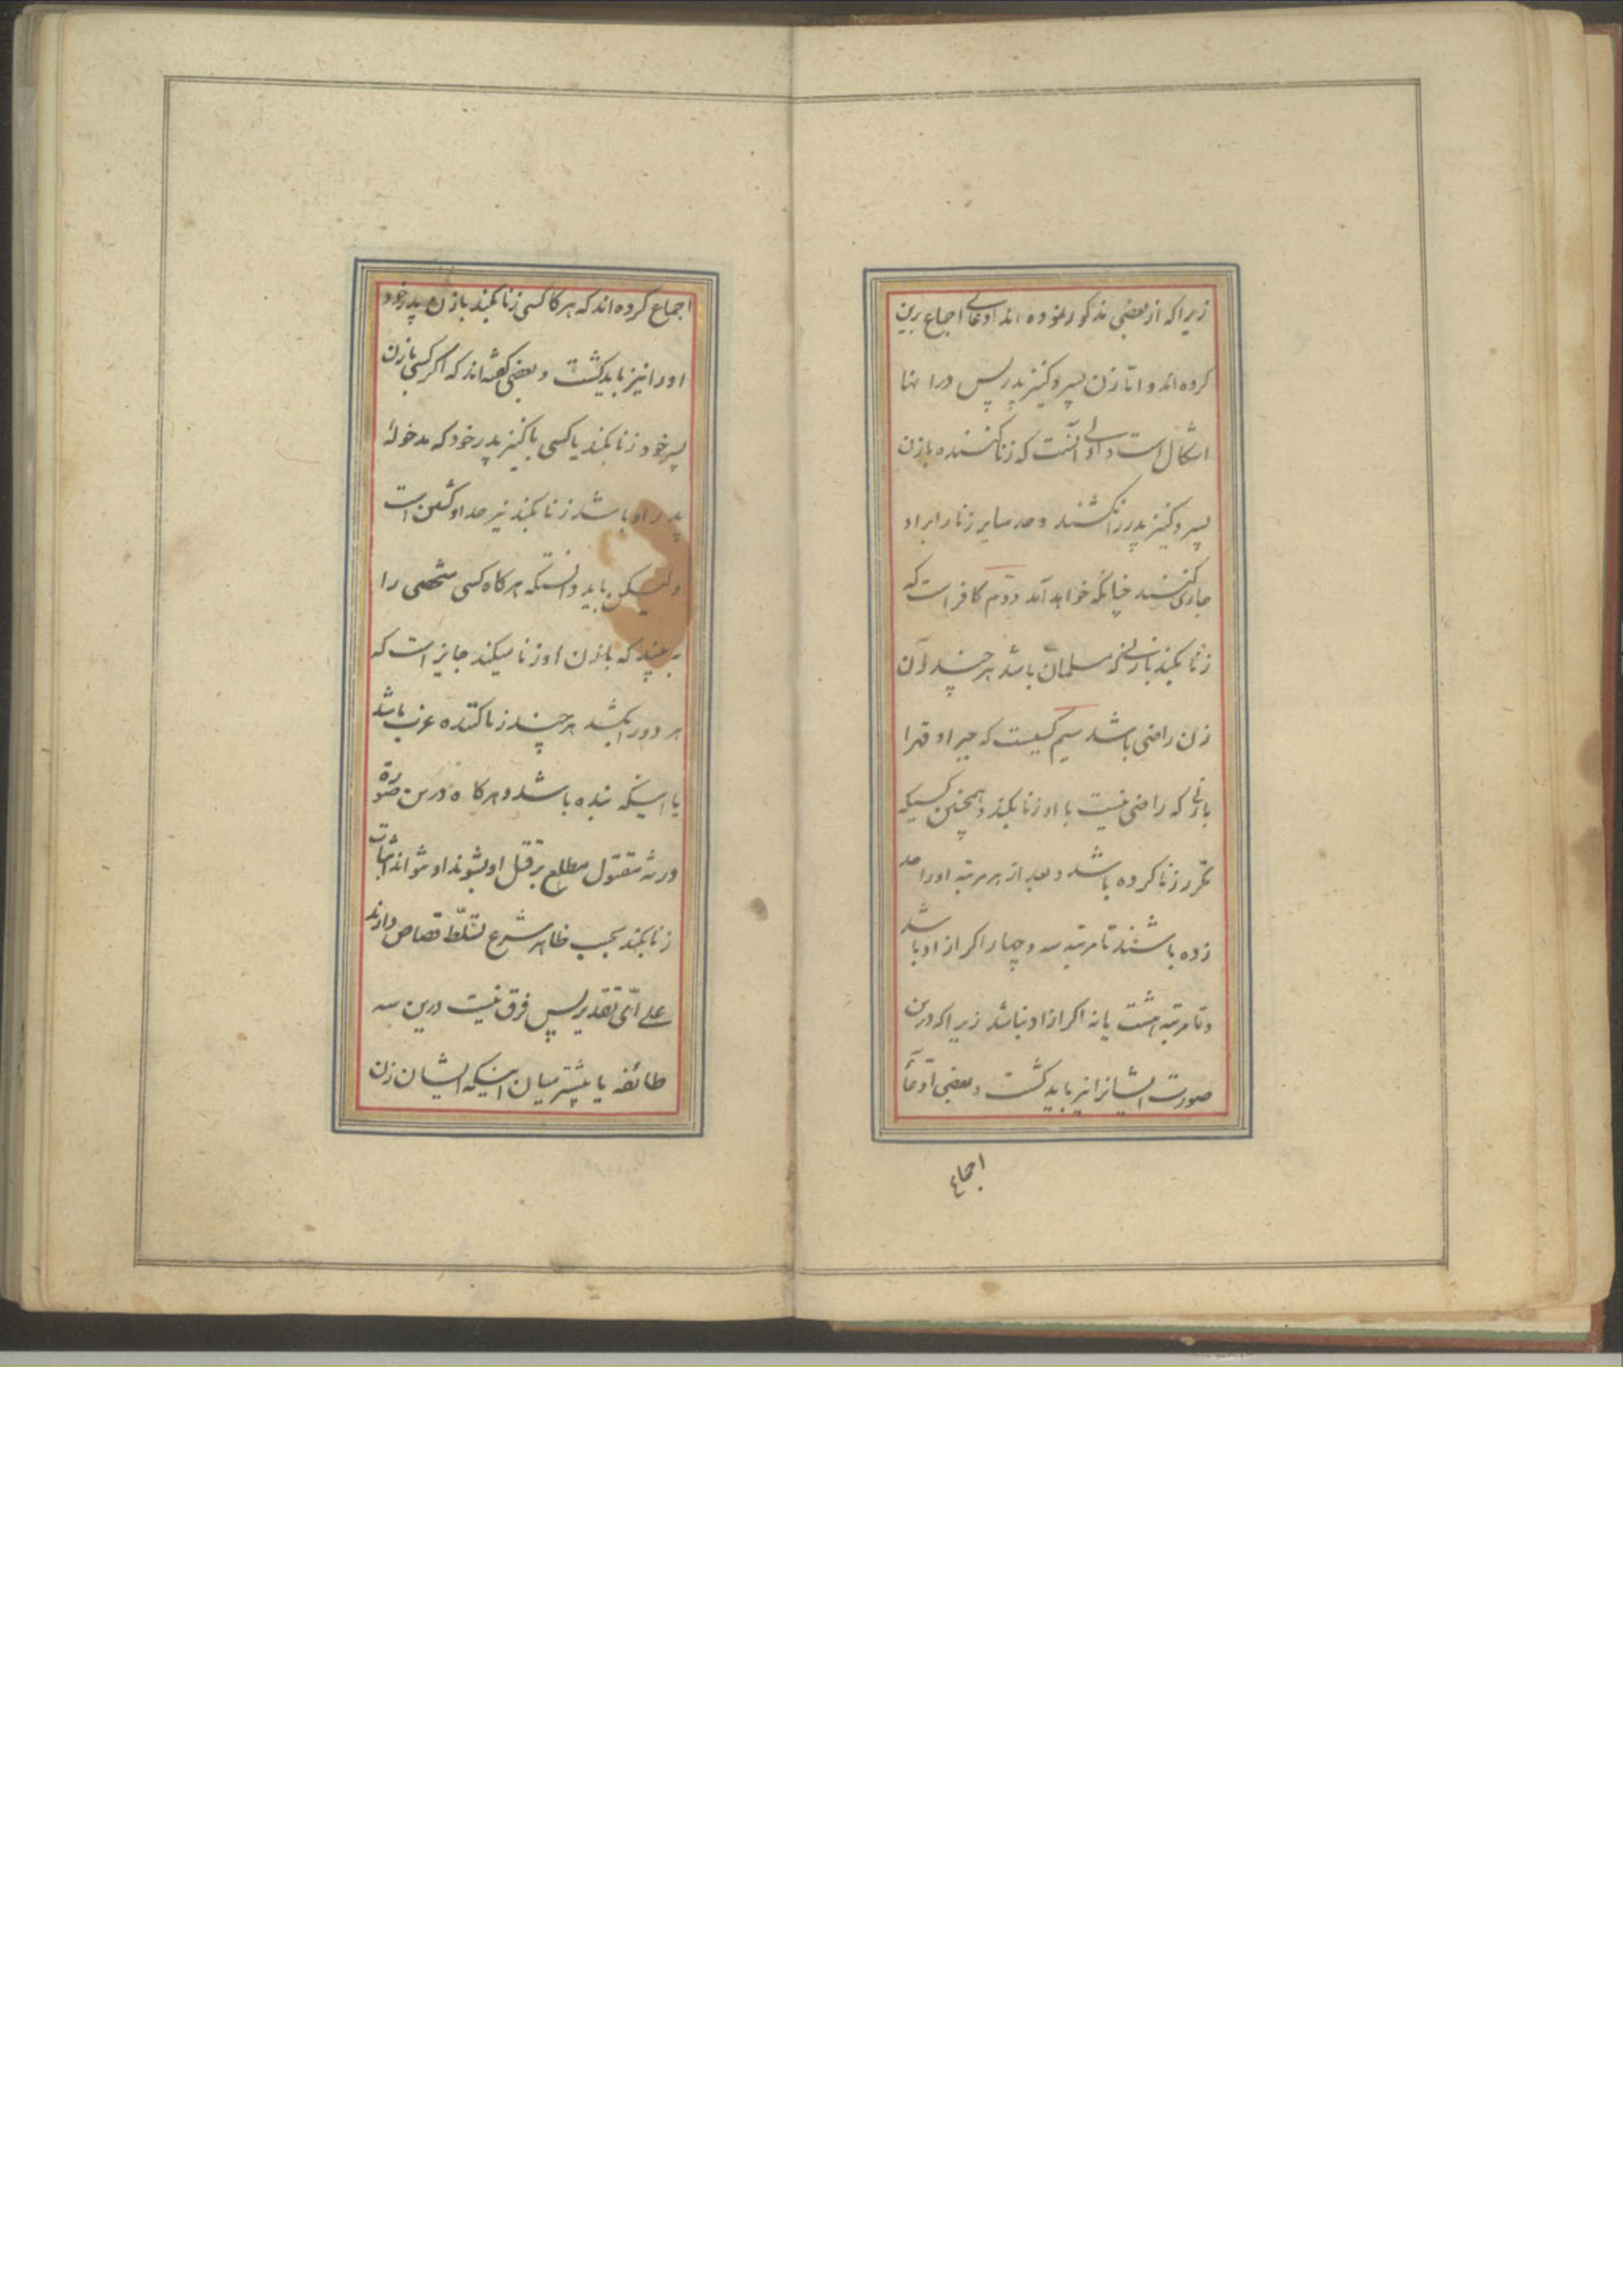 زیراکه از بعضی مذکور نموده اند ادعای اجماع برین
کرده اند و امّا زن پسر و کنیز پدر پس در اینها
اشکال است و اولی آنست که زنا کننده بازن
پسر و کنیز پدر را نکشند و حد سایر زنا را بر او
جاری کنند چنانکه خواهد آمد دوّم کافر است که
زنا بکند بازنی که مسلمان باشد هر چند آن
زن راضی باشد سیم کسیست که جبرا و قهرا
بازنی که راضی نیست با او زنا بکند و همچنین کسیکه
مکرر زنا کرده باشد و بعد از هر مرتبه او را حد
زده باشند تا مرتبه سه و چهار اکر ازاد باشد
و تا مرتبه هشت یا نه اکر ازاد نباشد زیراکه درین
صورت ایشانرا نیز باید کشت و بعضی ادّعآ
اجماع
اجماع کرده اند که هرکا کسی زنا بکند بازن پدر خود
او را نیز باید کشت و بعضی کفته اند که اکر کسی بازن
پسر خود زنا بکند یا کسی باکنیز پدر خود که مدخوله
پدر او باشد زنا بکند نیز حد او کشتن است
ولیکن باید دانستکه هرکاه کسی شخصی را
به بیند که بازن او زنا میکند جایز است که
هر دو را بکشد هر چند زنا کننده عزب باشد
یا اینکه بنده باشد و هرکاه درین صورة
ورثه مقتول مطلع بر قتل او بشوند او نتواند اثبات
زنا بکند بحسب ظاهر شرع تسلّط قصاص دارند
علی ایّ تقدیر پس فرق نیست درین سه
طائفه یا بیشتر میان اینکه ایشان زن